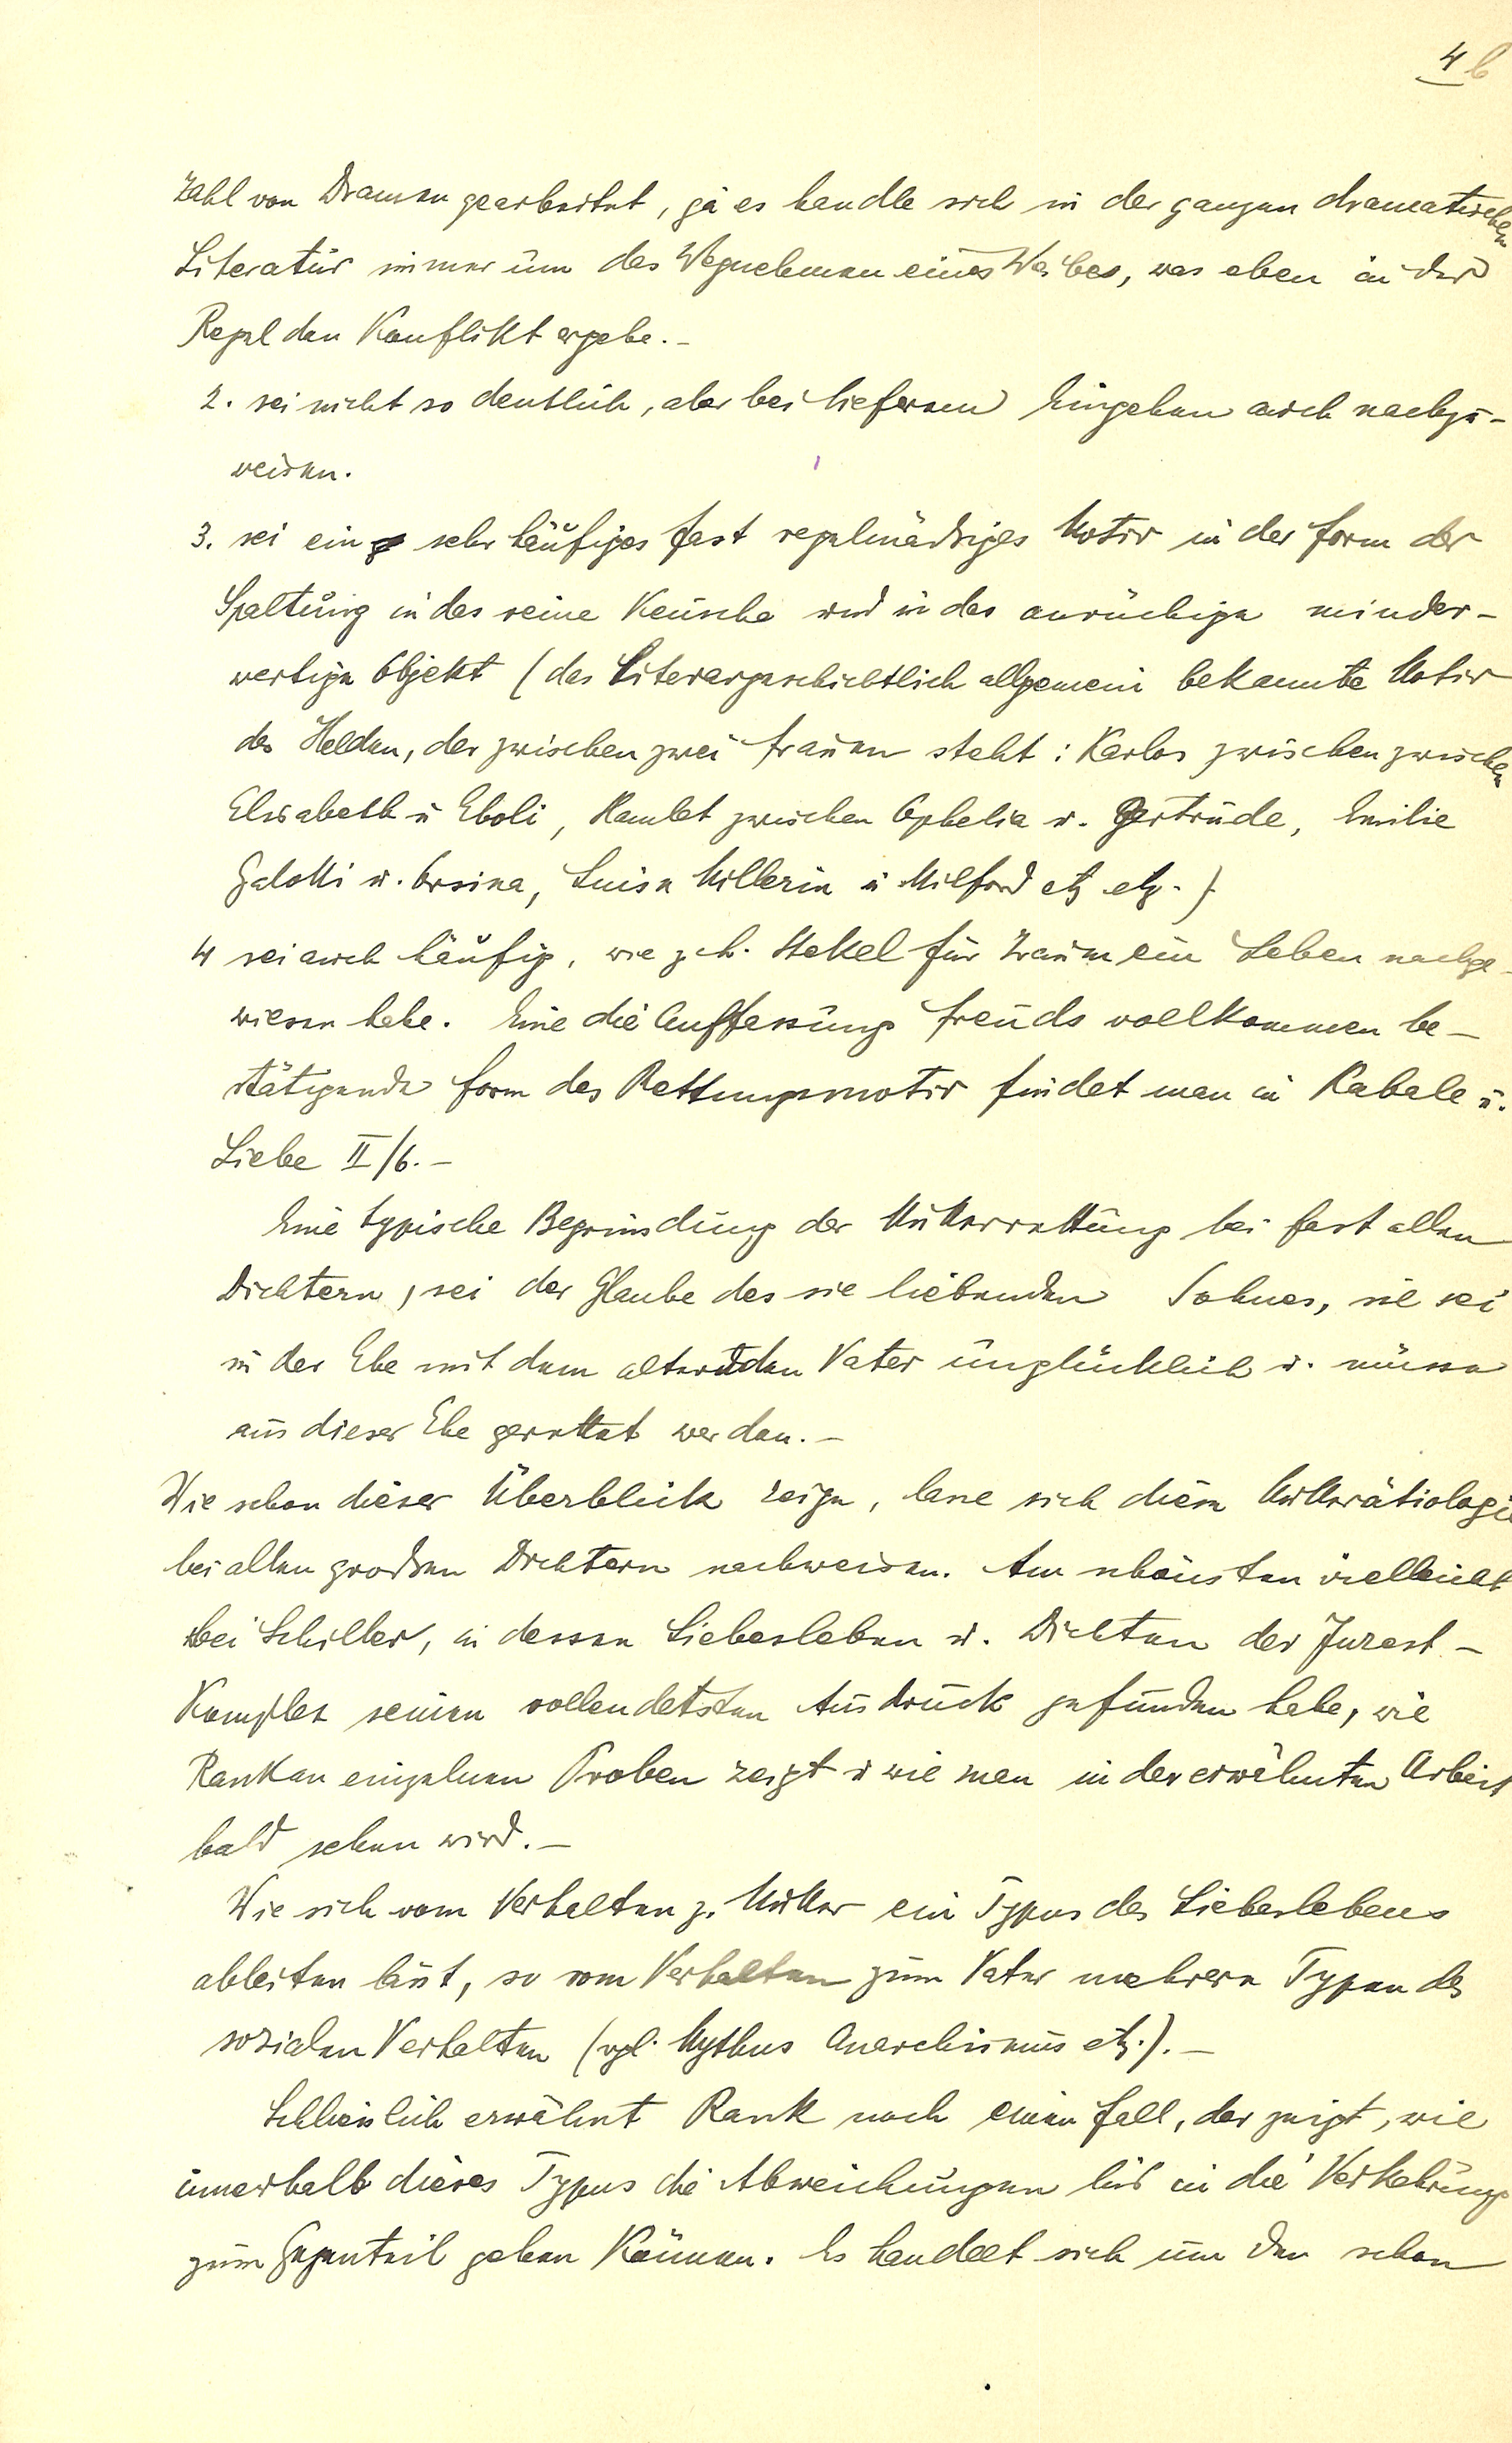 4 b
Zahl von Dramen gearbeitet, ja es handle sich in der ganzen dramatischen
Literatur immer um das Wegnehmen eines Weibes, was eben in der
Regel den Konflikt ergebe. –
2. sei nicht so deutlich, aber bei tieferem Eingehen auch nachzu-
weisen.
3. sei ein sehr häufiges fast regelmässiges Motiv in der Form der
Spaltung in das reine Keusche und in das anrüchige minder-
wertige Objekt (das Literargeschichtlich allgemein bekannte Motiv
des Helden, der zwischen zwei Frauen steht: Karlos zwischen zwischen
Elisabeth u Eboli, Hamlet zwischen Ophelia u. Gertrude, Emilie
Galotti u. Orsina, Luise Millerin u Milford etz etz.)
4 sei auch häufig, wie z. b. Stekel für Traum ein Leben nachge-
wiesen habe. Eine die Auffassung Freuds vollkommen be-
stätigende Form des Rettungsmotiv findet man in Kabale u.
Liebe II/6. –
Eine typische Begründung der Mutterrettung bei fast allen
Dichtern, sei der Glaube des sie liebenden Sohnes, sie sei
in der Ehe mit dem alternden Vater unglücklich u. müsse
aus dieser Ehe gerettet werden. –
Wie schon dieser Überblick zeige, lasse sich diese Mutterätiologie
bei allen grossen Dichtern nachweisen. Am schönsten vielleicht
bei Schiller, in dessen Liebesleben u. Dichten der Inzest-
Komplex seinen vollendetsten Ausdruck gefunden habe, wie
Rank an einzelnen Proben zeigt u wie man in der erwähnten Arbeit
bald sehen wird. –
Wie sich vom Verhalten z. Mutter ein Typus des Liebeslebens
ableiten lässt, so vom Verhalten zum Vater mehrere Typen des
sozialen Verhalten (vgl. Mythus Anarchismus etz.). –
Schliesslich erwähnt Rank noch einen Fall, der zeigt, wie
innerhalb dieses Typus die Abweichungen bis in die Verkehrung
zum Gegenteil gehen Können. Es handelt sich um den schon